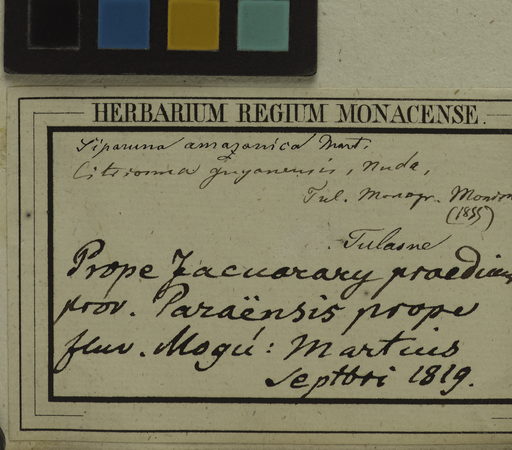 HERBARIUM REGIUM MONACENSE.
Siparuna amazonica Mart.
Citriosma guyanensis, nuda,
Tul. Monogr. Monim
(1855)
Tulasne
Prope Jacuarary praedium
prov. Paraënsis prope
fluv. Mogú: Martius
Septbri 1819.